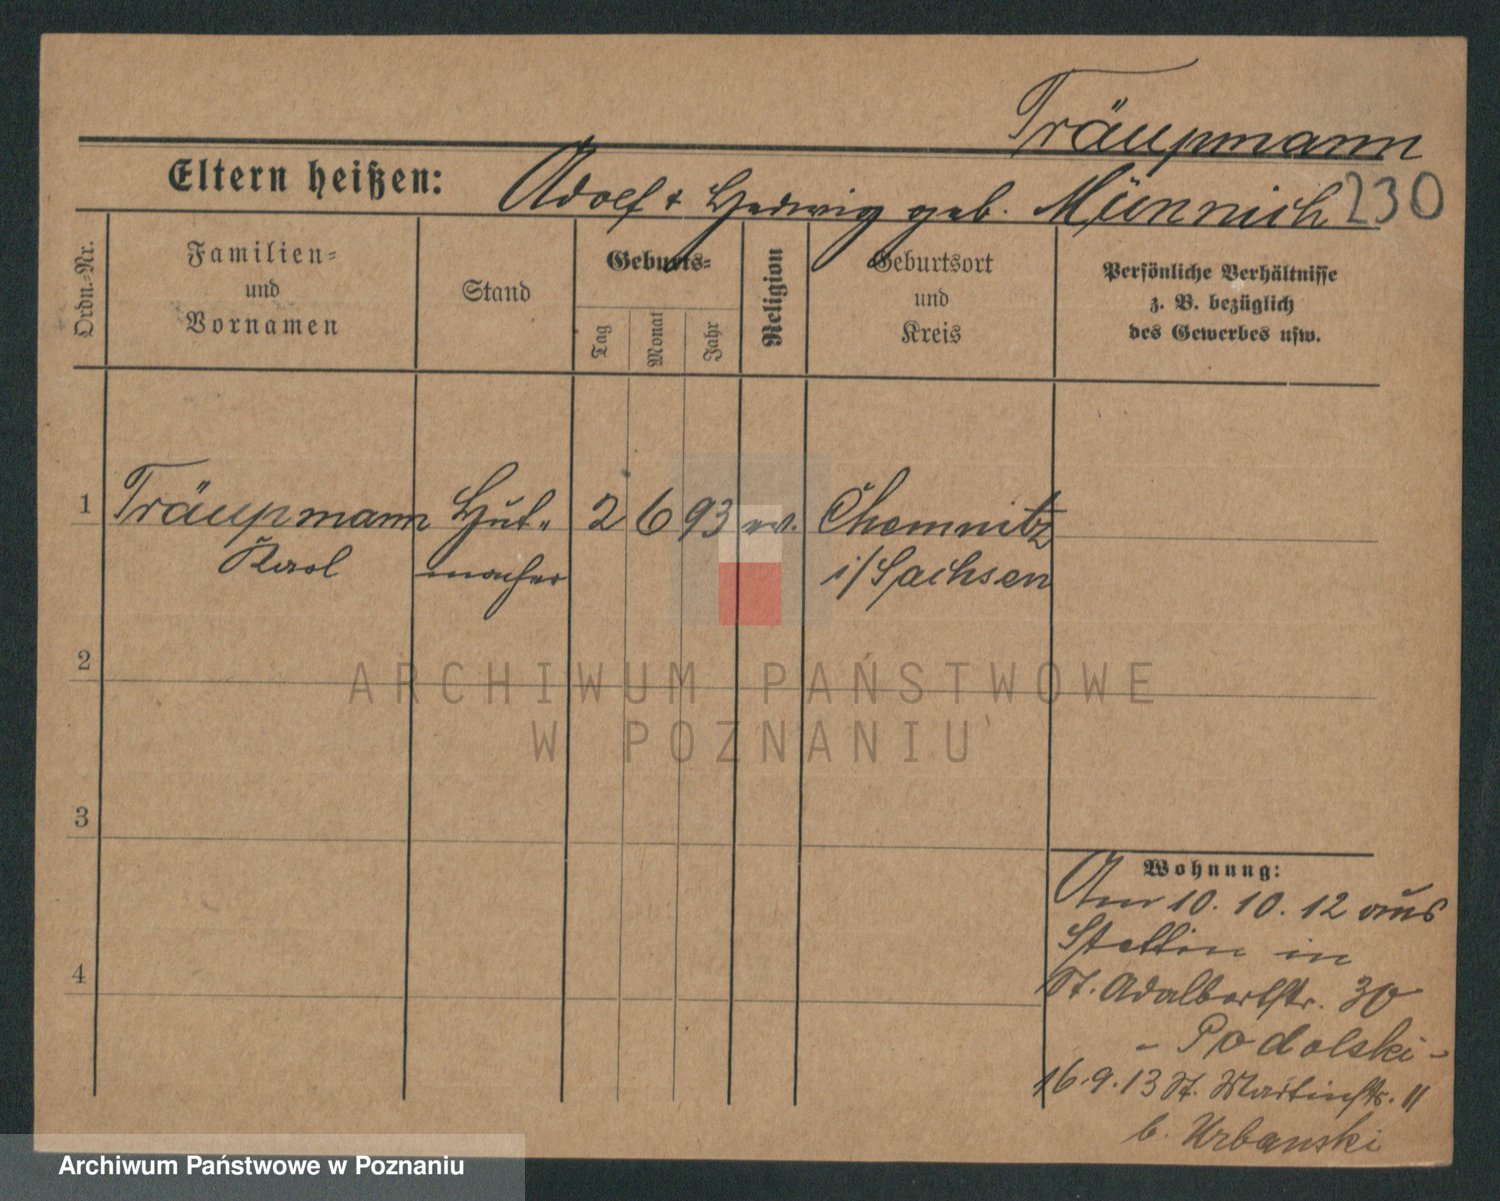 Träupmann
Eltern heißen: Adolf & Hedwig geb. Münnich 230
Ordn.-Nr.
Familien-
und
Vornamen
Stand
Geburts-
Tag
Monat
Jahr
Religion
Geburtsort
und
Kreis
Persönliche Verhältnisse
z. B. bezüglich
des Gewerbes usw.
1 Träupmann Hut- 2 6 93 ev. Chemnitz
Karl macher i/Sachsen
2
ARCHIWUM PAŃSTWOWE
W POZNANIU
3
Wohnung:
Am 10. 10. 12 aus
Stettin in
4
St. Adalbertstr. 30
- Podolski -
16.9.13 St. Martinstr. 11
b. Urbanski
Archiwum Państwowe w Poznaniu